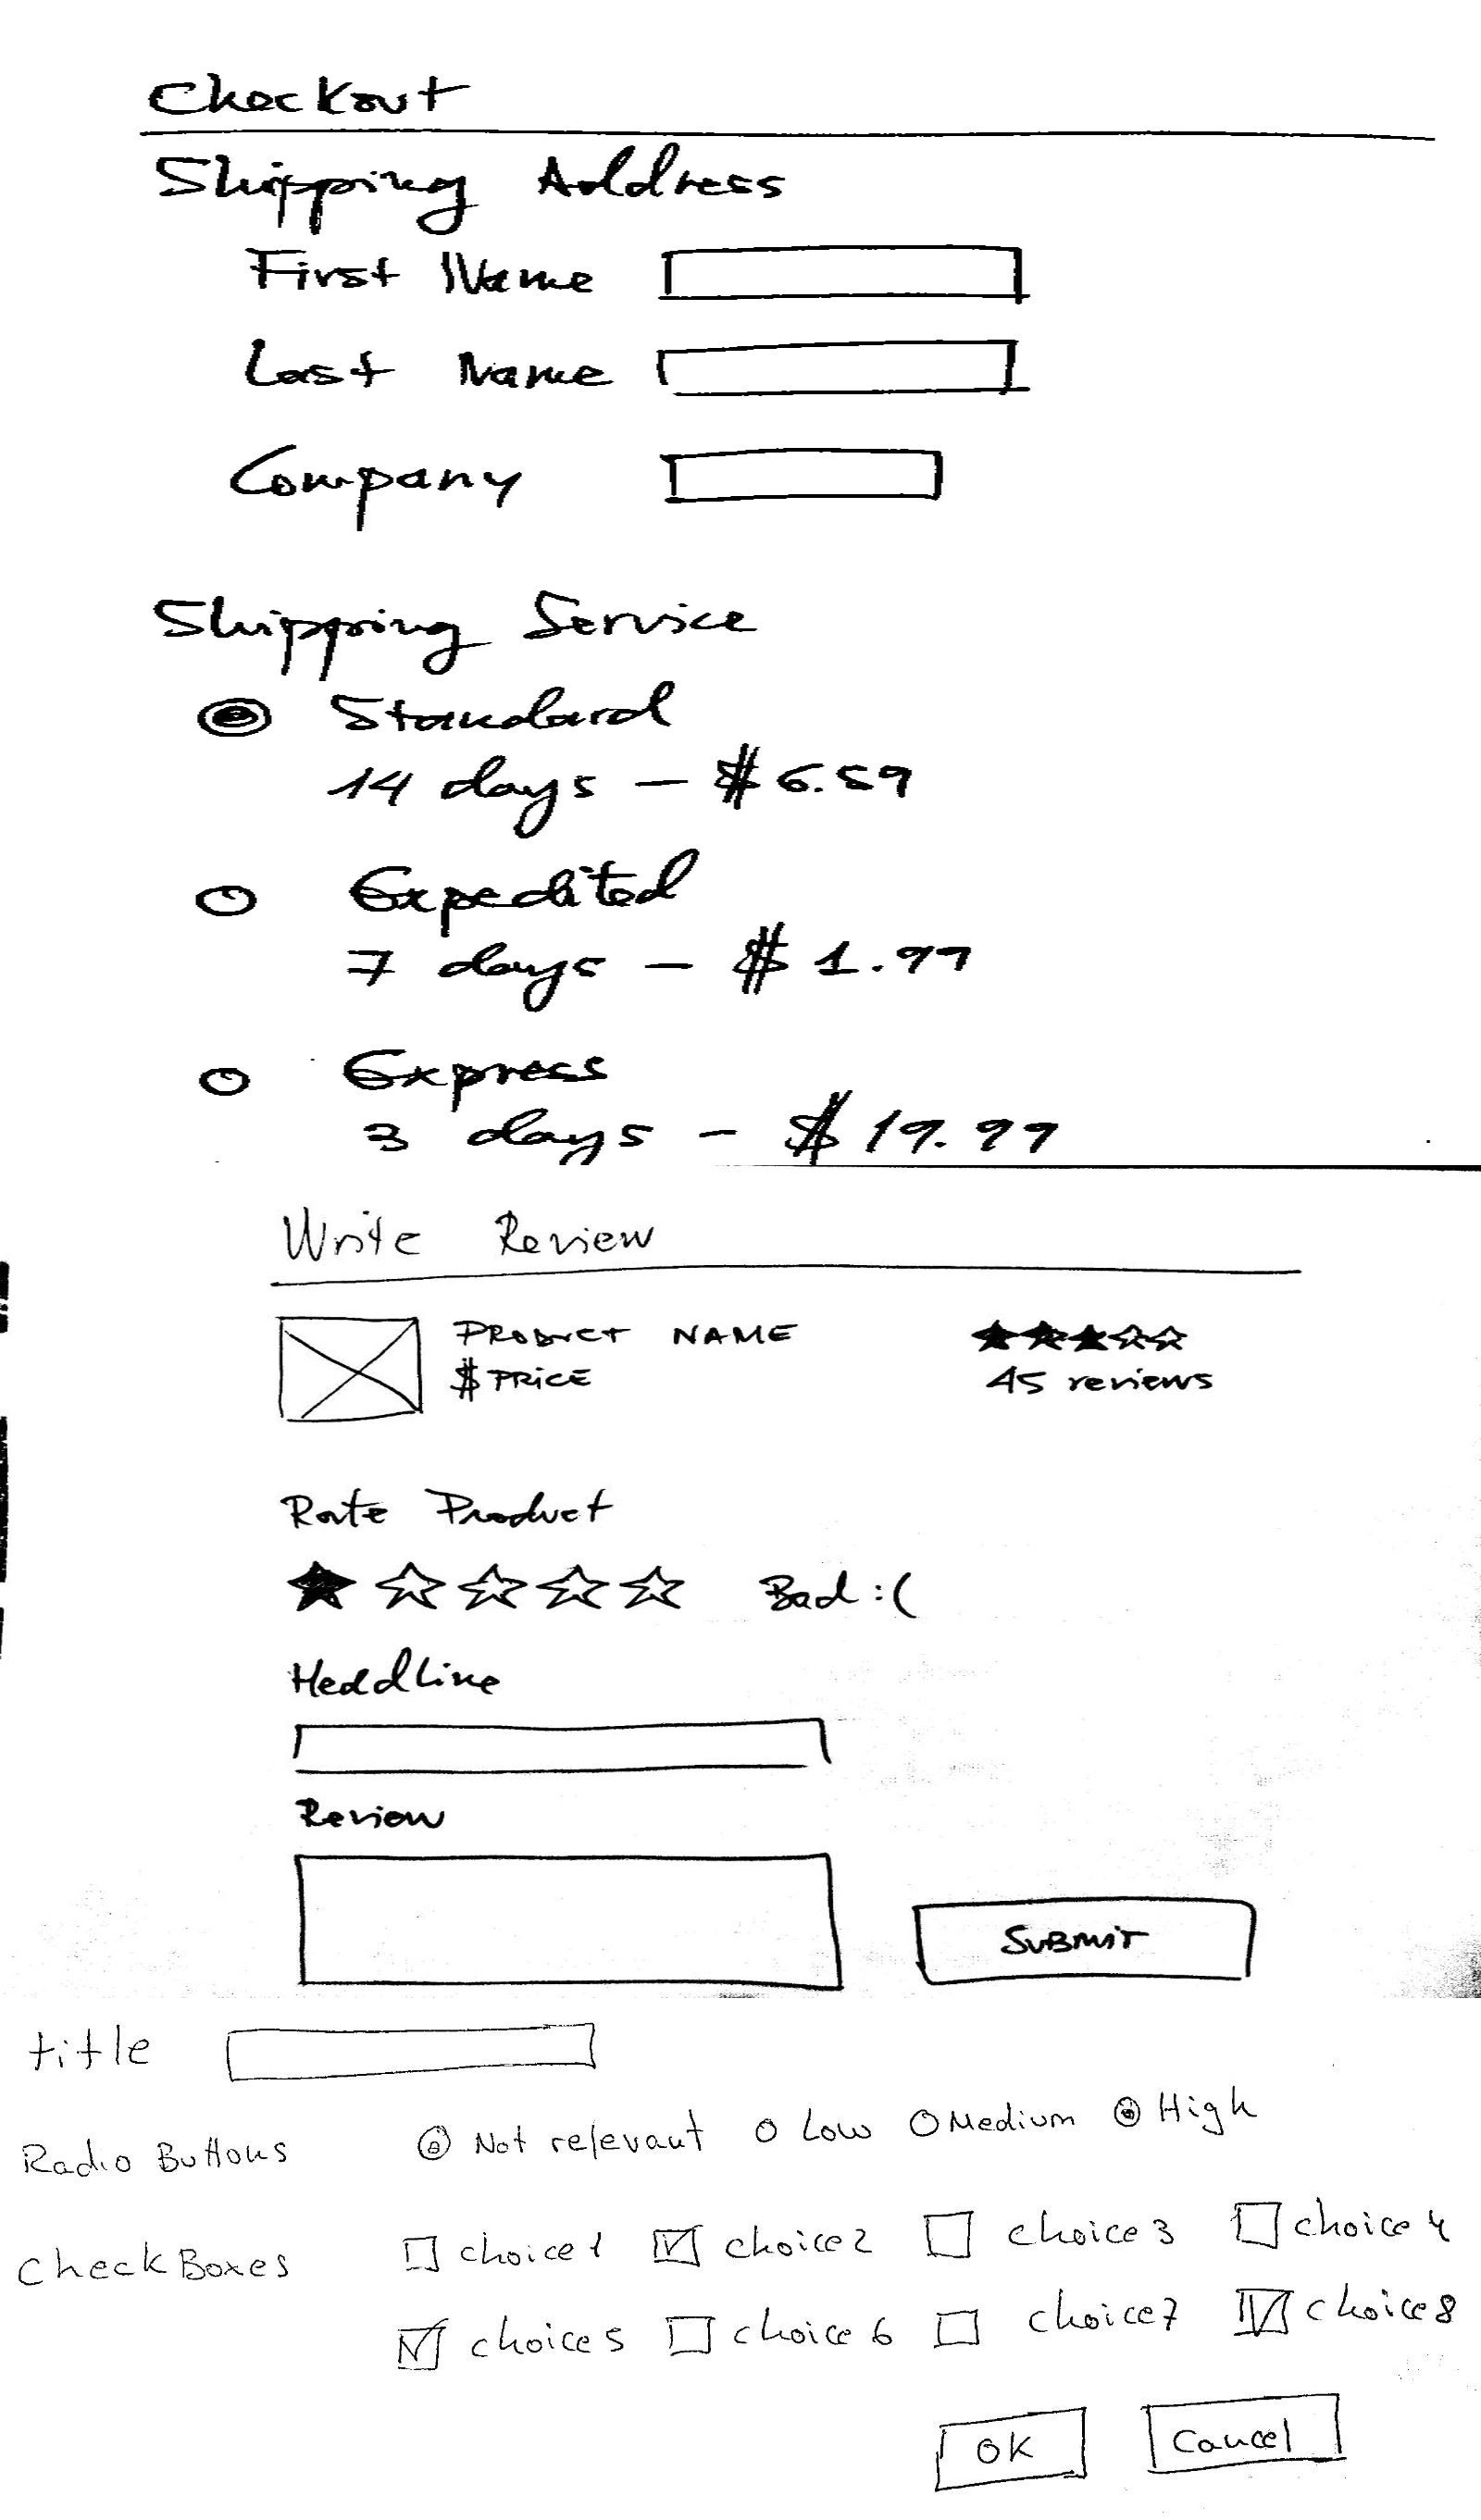 Checkout
Shipping Address
First Name
Last Name
Company
Shipping Service
Standard
14 days - $6.59
Expedited
7 days - $1.99
Express
3 days - $19.99
Write Review
PRODUCT NAME
$PRICE
45 reviews
Rate Product
Bad :(
Headline
Review
SUBMIT
title
Radio Buttons Not relevant Low Medium High
CheckBoxes choice 1 choice 2 choice 3 choice 4
choice 5 choice 6 choice 7 choice 8
OK Cancel